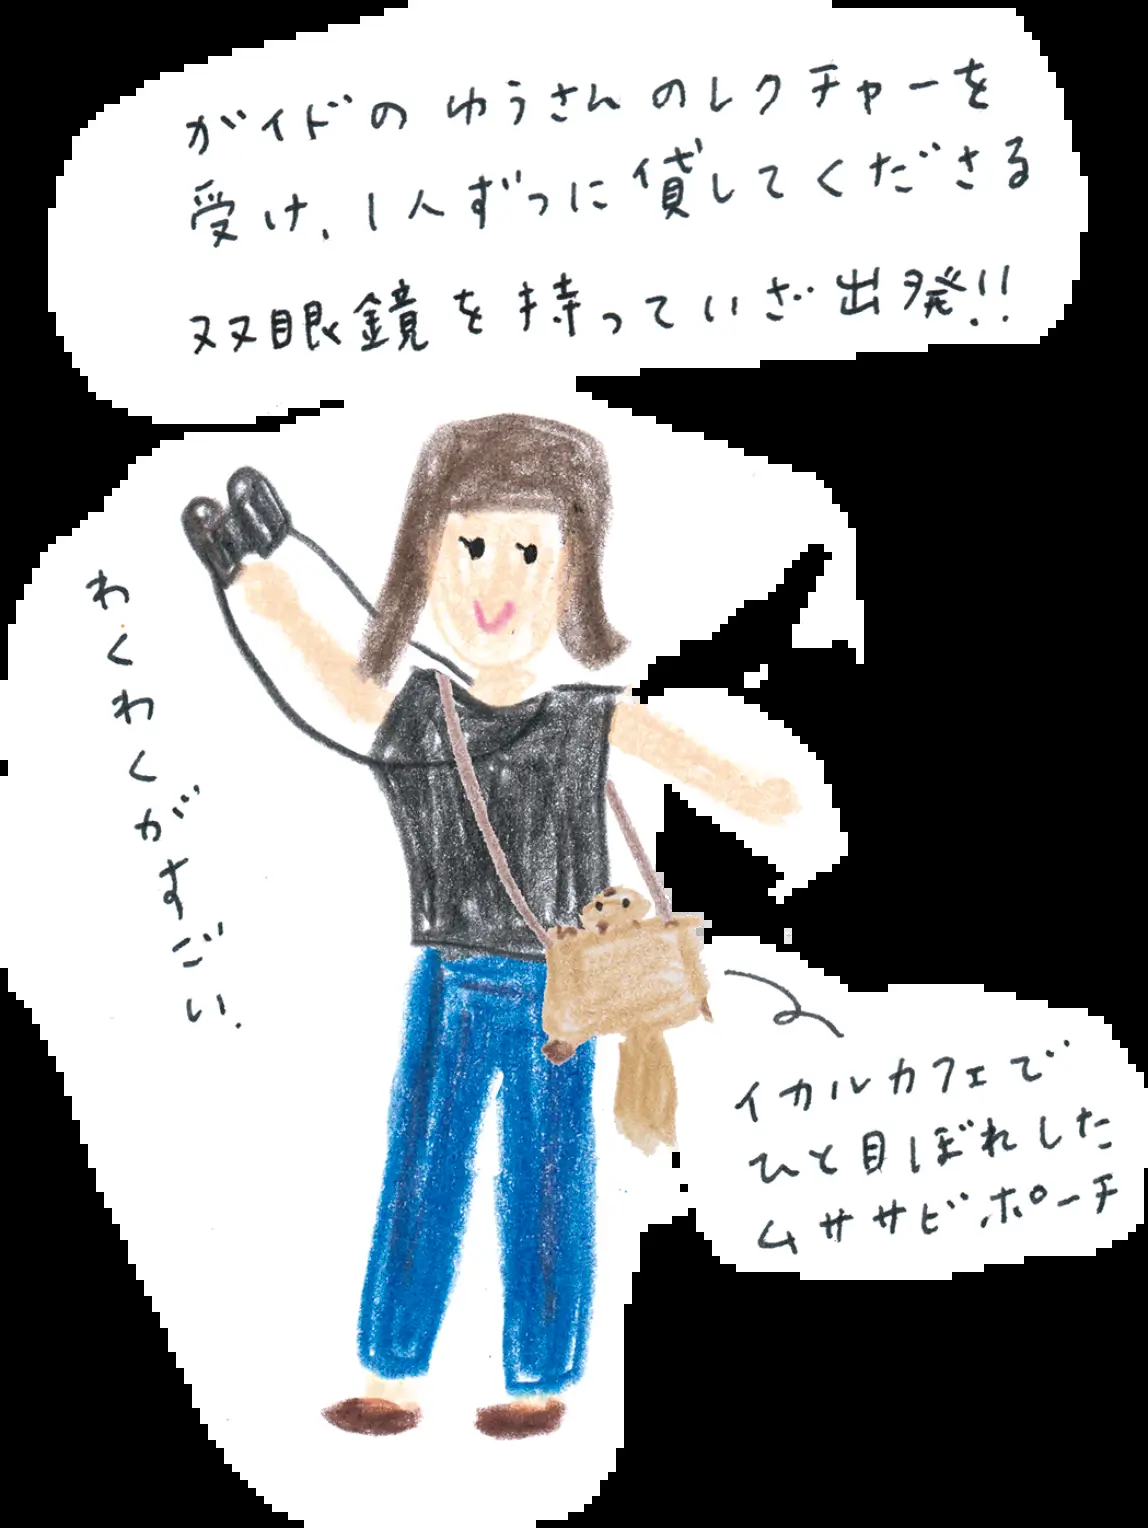 ガイドの ゆうさんのレクチャーを
受け、1人ずつに貸してくださる
双眼鏡を持っていざ出発!!
わくわくがすごい.
イカルカフェで
ひと目ぼれした
ムササビポーチ